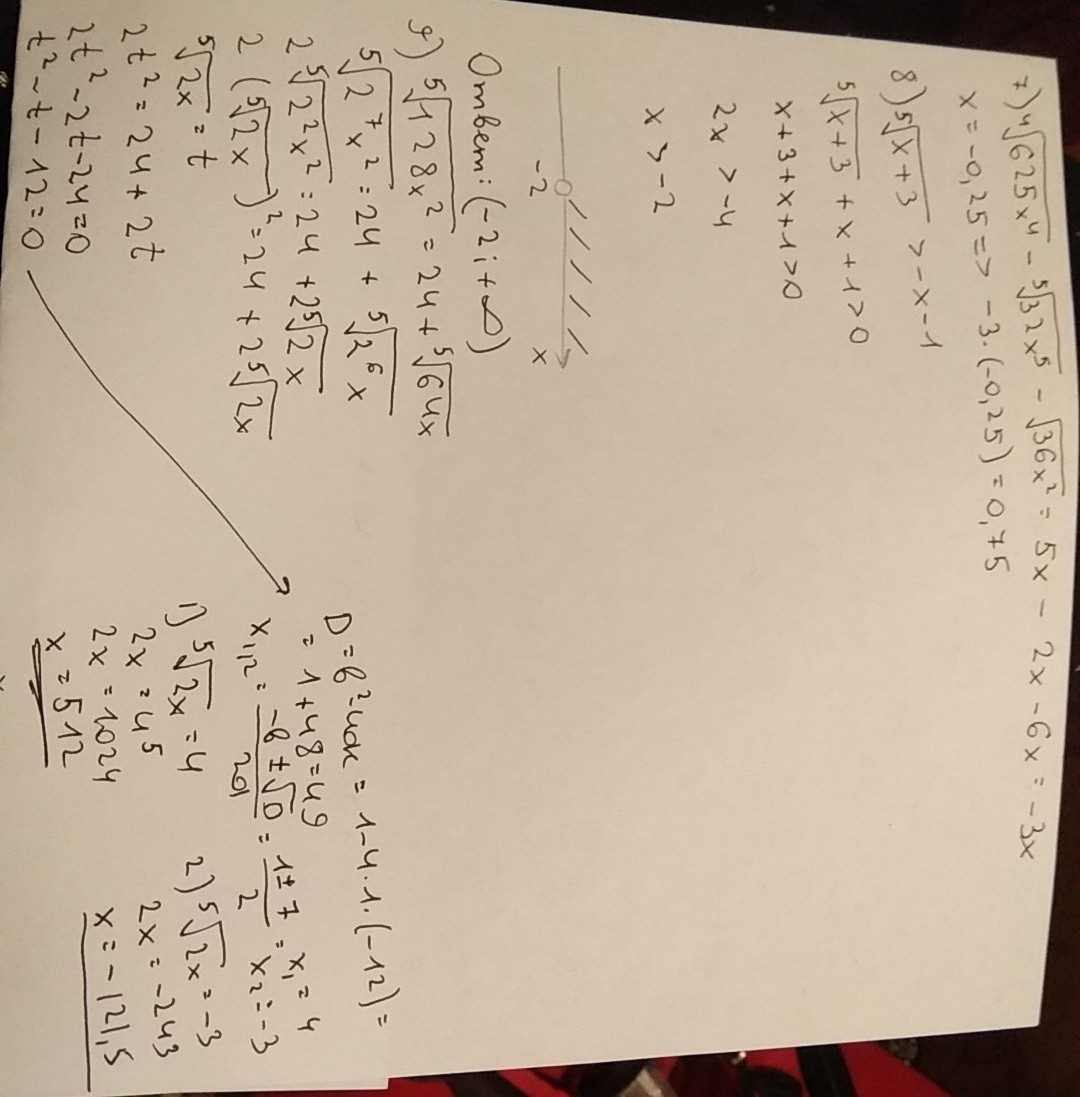 7) ⁴√625x⁴ - ⁵√32x⁵ - √36x² = 5x - 2x - 6x = -3x
x = -0,25 => -3·(-0,25) = 0,75
8) ⁵√x+3 > -x-1
⁵√x+3 + x + 1 > 0
x+3+x+1>0
2x > -4
x > -2
-2 x
Ответ: (-2; +∞)
9) ⁵√128x² = 24 + ⁵√64x
⁵√2⁷x² = 24 + ⁵√2⁶x
2⁵√2²x² = 24 + 2⁵√2x
2(⁵√2x)² = 24 + 2⁵√2x
⁵√2x = t
2t² = 24 + 2t
2t² - 2t - 24 = 0
t² - t - 12 = 0
D = b² - 4ac = 1 - 4·1·(-12) =
= 1 + 48 = 49
x₁,₂ = -b ± √D / 2a = 1 ± 7 / 2 = x₁ = 4
x₂ = -3
1) ⁵√2x = 4
2x = 4⁵
2x = 1024
x = 512
2) ⁵√2x = -3
2x = -243
x = -121,5